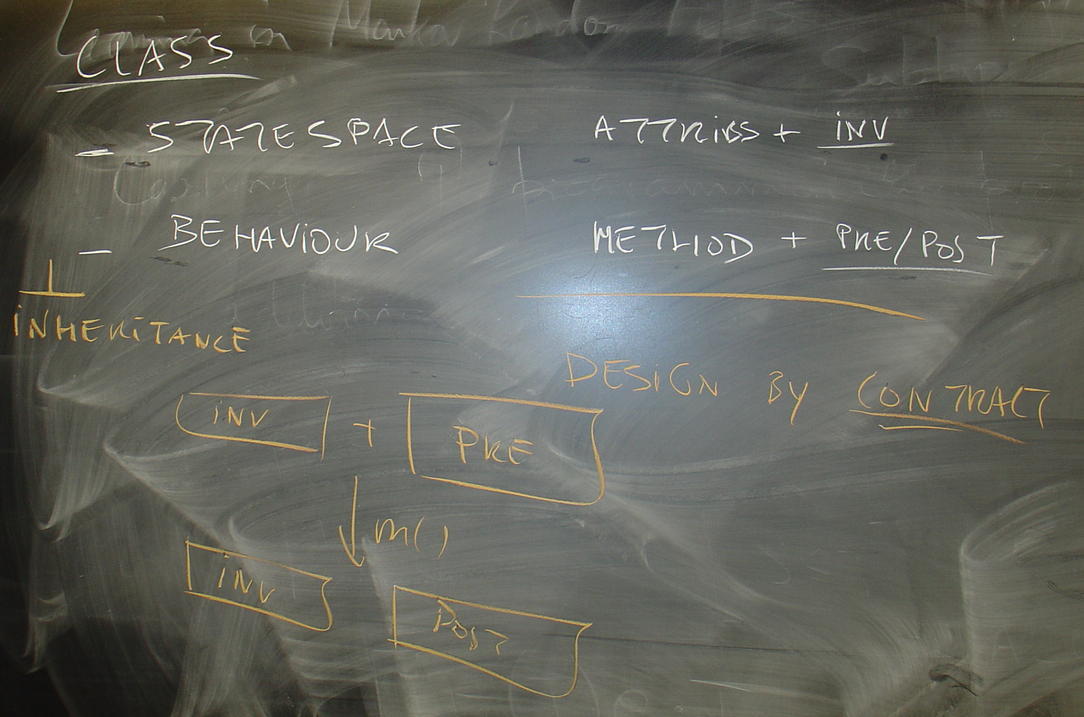 CLASS
- STATESPACE ATTRIBS + INV
- BEHAVIOUR METHOD + PRE/POST
INHERITANCE
DESIGN BY CONTRACT
INV + PRE
m()
INV POST